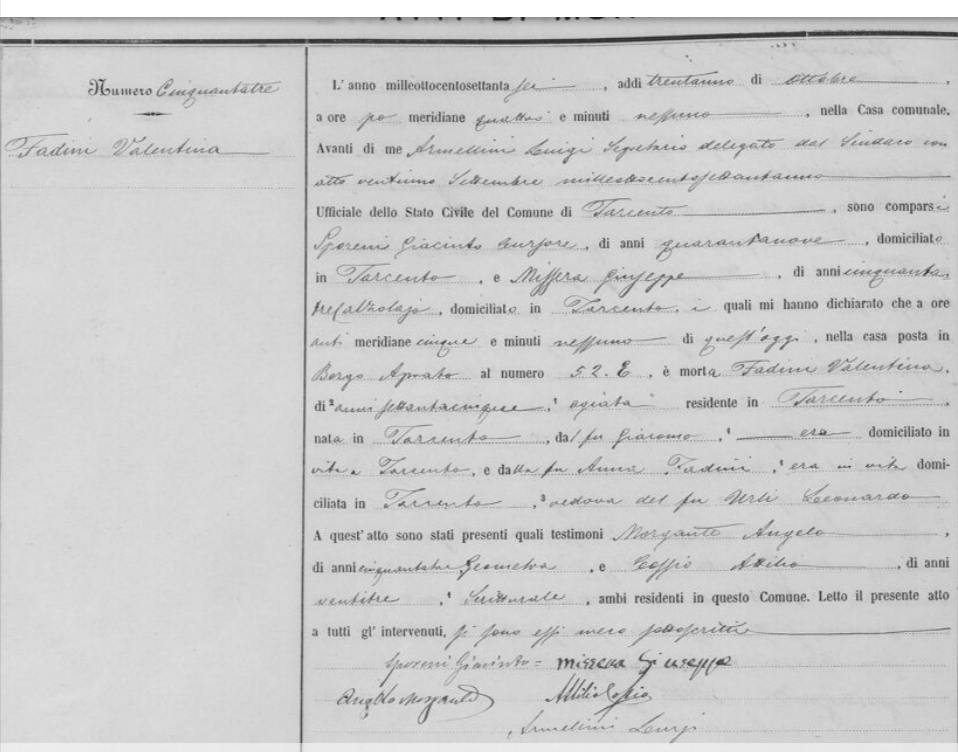 ATTI DI MOR
Numero Cinquantatre
Fadini Valentina
L' anno milleottocentosettanta sei, addi trentanno di Ottobre,
a ore po meridiane quattro e minuti nessuno, nella Casa comunale.
Avanti di me Armellini Luigi Segretario delegato dal Sindaco con
atto ventiuno Settembre milleottocentosettantauno
Ufficiale dello Stato Civile del Comune di Tarcento, sono comparsi
Sporeni Giacinto Cursore, di anni quarantanove, domiciliato
in Tarcento, e Missera Giuseppe, di anni cinquanta
tre calzolajo, domiciliato in Tarcento, i quali mi hanno dichiarato che a ore
anti meridiane cinque e minuti nessuno di quest'oggi, nella casa posta in
Borgo Aprato al numero 52. E, è morta Fadini Valentina,
di ² anni settantacinque, ¹ agiata residente in Tarcento,
nata in Tarcento, dal fu Giacomo, ¹ era domiciliato in
vita a Tarcento, e dalla fu Anna Fadini, ¹ era in vita domi-
ciliata in Tarcento, ³ vedova del fu Urli Leonardo
A quest' atto sono stati presenti quali testimoni Morgante Angelo,
di anni cinquantatre Geometra, e Coffio Attilio, di anni
ventitre, ¹ Scritturale, ambi residenti in questo Comune. Letto il presente atto
a tutti gl' intervenuti, si sono essi meco sottoscritti
Sporeni Giacinto = Missera Giuseppe
Angelo Morgante Attilio Coffio
Armellini Luigi